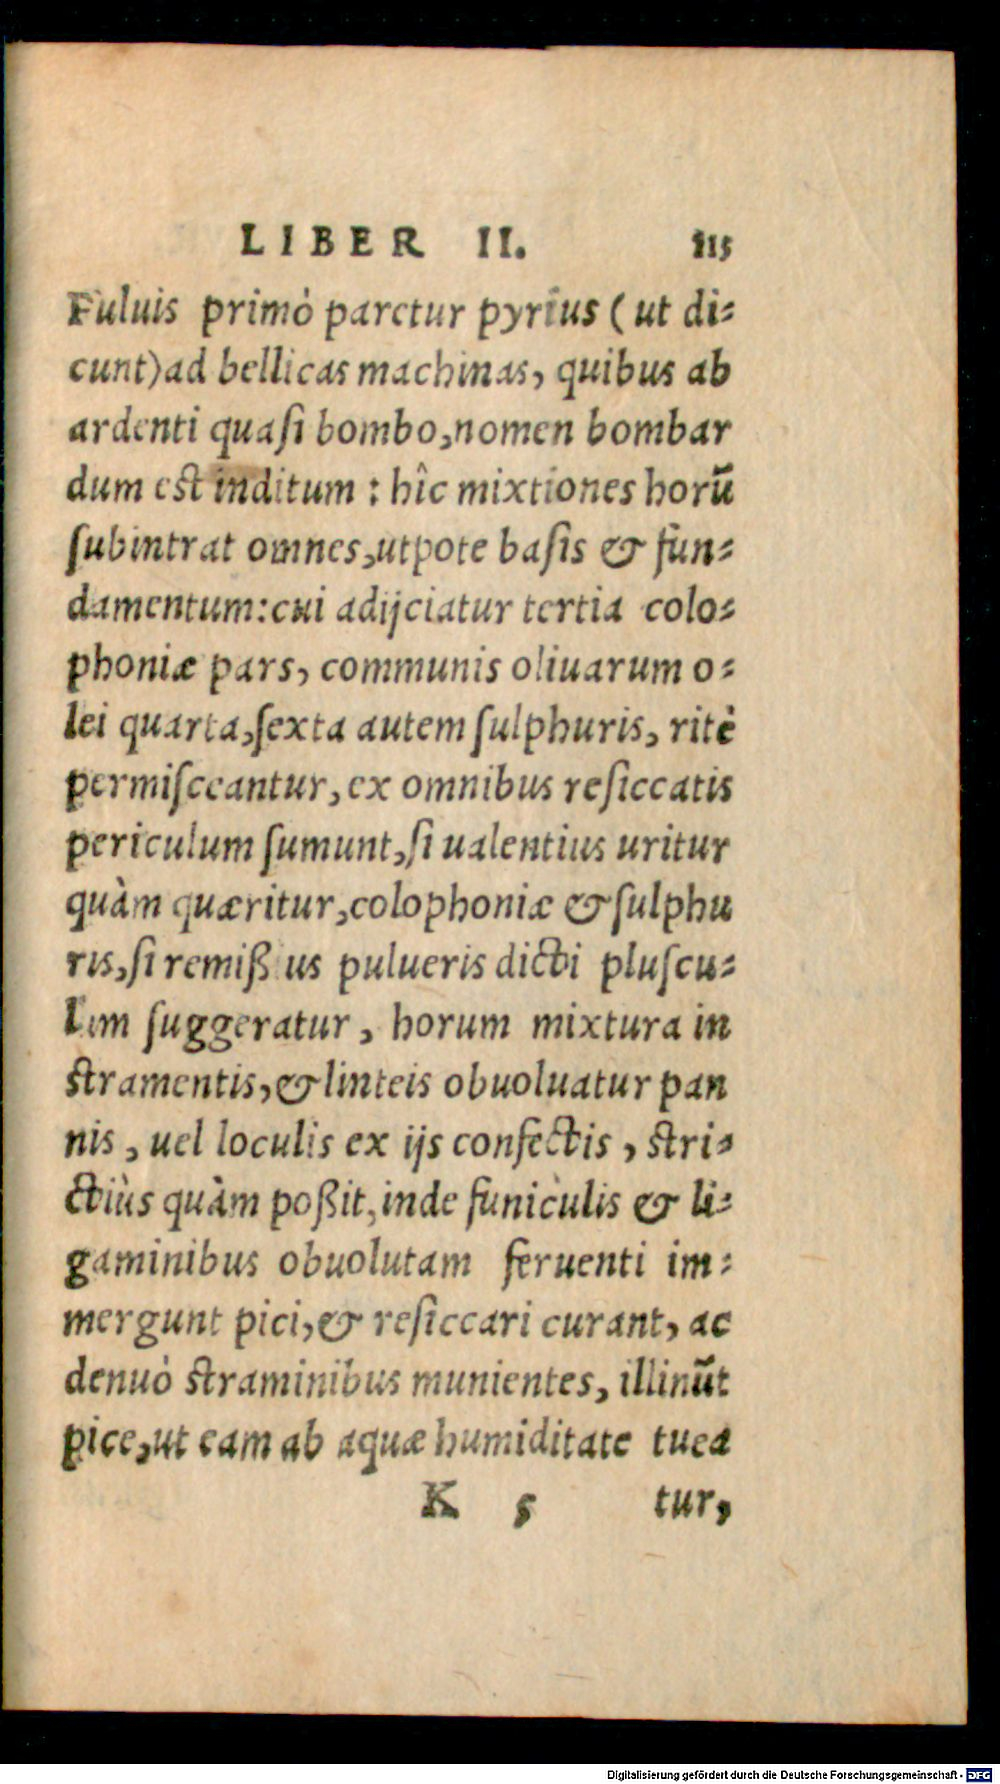 LIBER II. 115
Puluis primò paretur pyrius (ut di⸗
cunt)ad bellicas machinas, quibus ab
ardenti quaſi bombo,nomen bombar
dum est inditum : hîc mixtiones horū
ſubintrat omnes,utpote baſis & fun⸗
damentum:cui adijciatur tertia colo⸗
phoniæ pars, communis oliuarum o⸗
lei quarta,ſexta autem ſulphuris, ritè
permiſceantur,ex omnibus reſiccatis
periculum ſumunt,ſi ualentius uritur
quàm quæritur,colophoniæ & ſulphu
ris,ſi remißius pulueris dicti pluſcu⸗
lum ſuggeratur, horum mixtura in
ſtramentis,& linteis obuoluatur pan
nis, uel loculis ex ijs confectis, ſtri⸗
ctiùs quàm poßit,inde funiculis & li⸗
gaminibus obuolutam feruenti im⸗
mergunt pici,& reſiccari curant, ac
denuò ſtraminibus munientes, illinūt
pice,ut eam ab aquæ humiditate tuea
K 5 tur,
Digitalisierung gefördert durch die Deutsche Forschungsgemeinschaft - DFG